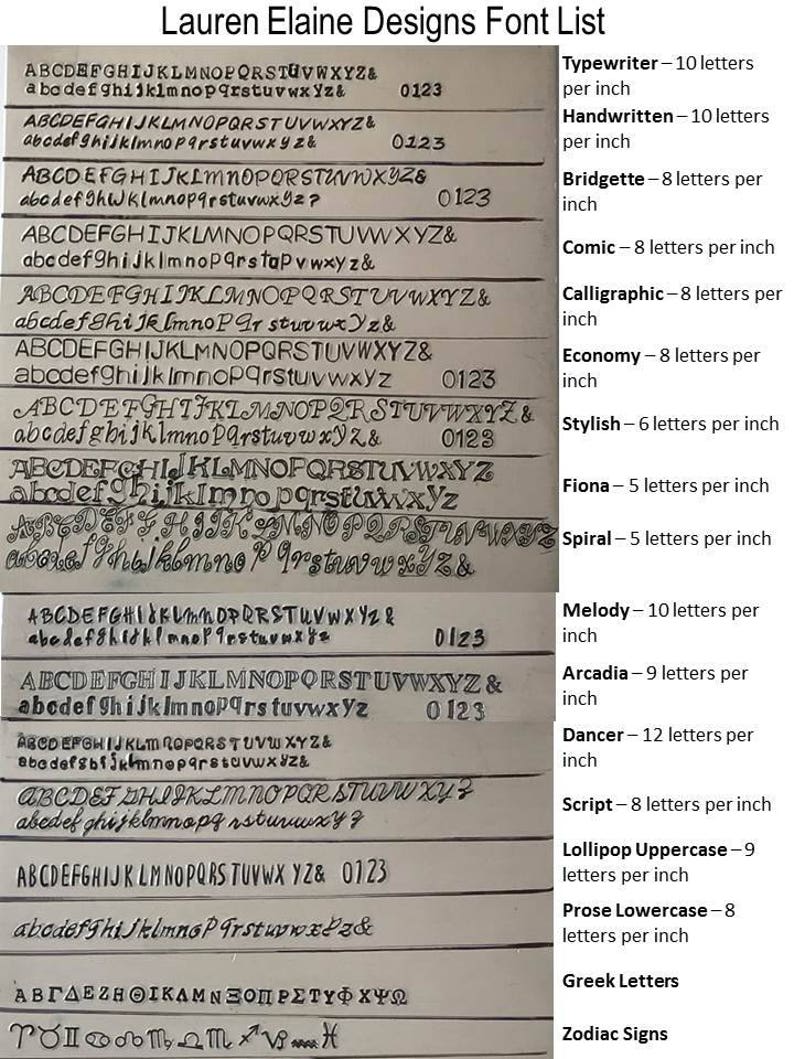 Lauren Elaine Designs Font List
ABCDEFGHIJKLMNOPQRSTUVWXYZ&
abcdefghijklmnopqrstuvwxyz& 0123
Typewriter – 10 letters
per inch
ABCDEFGHIJKLMNOPQRSTUVWXYZ&
abcdefghijklmnopqrstuvwxyz& 0123
Handwritten – 10 letters
per inch
ABCDEFGHIJKLMNOPQRSTUVWXYZ&
abcdefghijklmnopqrstuvwxyz? 0123
Bridgette – 8 letters per
inch
ABCDEFGHIJKLMNOPQRSTUVWXYZ&
abcdefghijklmnopqrstapvwxyz&
Comic – 8 letters per inch
ABCDEFGHIJKLMNOPQRSTUVWXYZ&
abcdefghijklmnopqrstuvwxyz&
Calligraphic – 8 letters per
inch
ABCDEFGHIJKLMNOPQRSTUVWXYZ&
abcdefghijklmnopqrstuvwxyz 0123
Economy – 8 letters per
inch
ABCDEFGHIJKLMNOPQRSTUVWXYZ&
abcdefghijklmnopqrstuvwxyz& 0123
Stylish – 6 letters per inch
ABCDEFGHIJKLMNOPQRSTUVWXYZ
abcdefghijklmnopqrstuvwxyz
Fiona – 5 letters per inch
ABCDEFGHIJKLMNOPQRSTUVWXYZ
abcdefghijklmnopqrstuvwxyz&
Spiral – 5 letters per inch
ABCDEFGHIJKLMNOPQRSTUVWXYZ&
abcdefghijklmnopqrstuvwxyz 0123
Melody – 10 letters per
inch
ABCDEFGHIJKLMNOPQRSTUVWXYZ&
abcdefghijklmnopqrstuvwxyz 0123
Arcadia – 9 letters per
inch
ABCDEFGHIJKLMNOPQRSTUVWXYZ&
abcdefghijklmnopqrstuvwxyz&
Dancer – 12 letters per
inch
ABCDEFGHIJKLMNOPQRSTUVWXYZ
abcdefghijklmnopqrstuvwxyz
Script – 8 letters per inch
ABCDEFGHIJKLMNOPQRSTUVWXYZ& 0123
Lollipop Uppercase – 9
letters per inch
abcdefghijklmnopqrstuvwxyz&
Prose Lowercase – 8
letters per inch
ΑΒΓΔΕΖΗΘΙΚΛΜΝΞΟΠΡΣΤΥΦΧΨΩ
Greek Letters
♈♉♊♋♌♍♎♏♐♑♒♓
Zodiac Signs